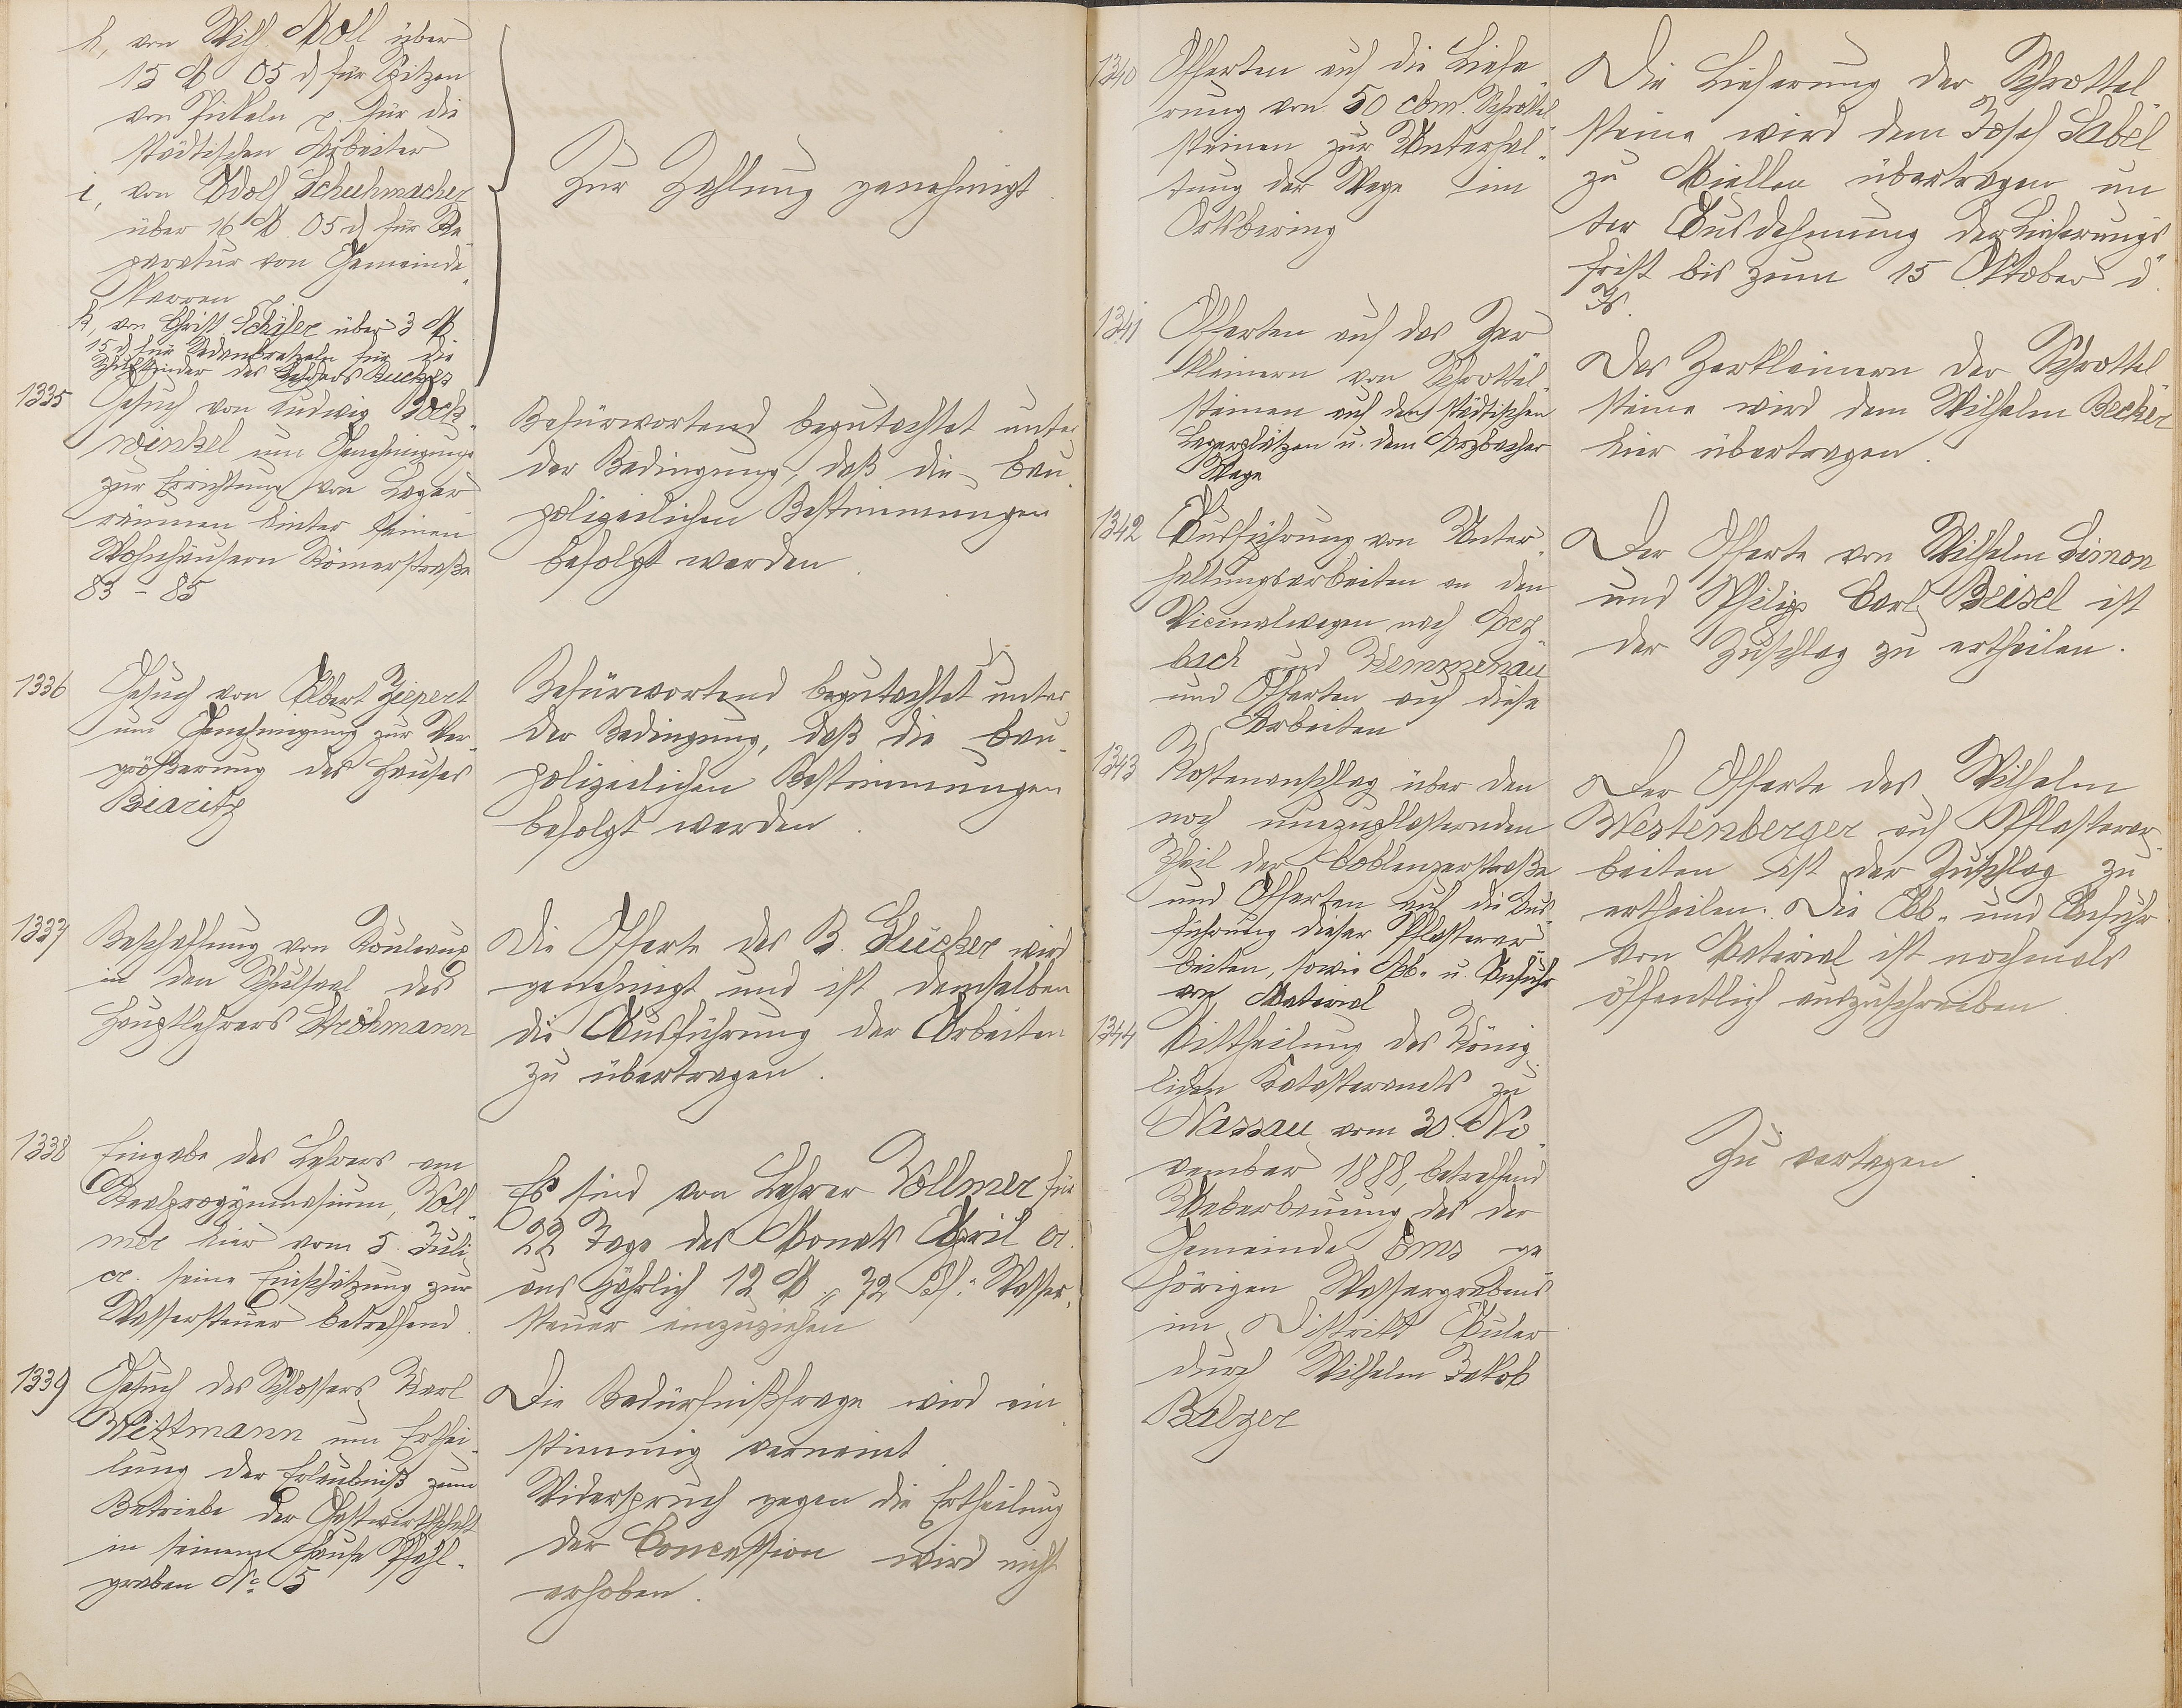 h, von Wilh. Moll über
15 M 05 d für Spitzen
von Pickeln p. für die
städtischen Arbeiter
i, von Adolf Schuhmacher
über 16 M 05 d für Re-
paratur von Gemeinde-
karren
k, von Christ. Schäfer über 3 M
15 d für für die
Schulkinder des Lehrers
Zur Zahlung genehmigt.
1335
Gesuch von Ludwig Bock-
winkel um Genehmigung
zur Errichtung von Lager
räumen hinter seinen
Wohnhäusern Römerstraße
83 - 85
Befürwortend begutachtet unter
der Bedingung, daß die bau-
polizeilichen Bestimmungen
befolgt werden.
1336
Gesuch von Albert Ziepert
um Genehmigung zur Ver-
größerung des Hauses
Biaritz
Befürwortend begutachtet unter
der Bedingung, daß die bau-
polizeilichen Bestimmungen
befolgt werden.
1337
Beschaffung von Rouleaux
in den Schulsaal des
Hauptlehrers Ströhmann
Die Offerte des B. Flücker wird
genehmigt und ist demselben
die Ausführung der Arbeiten
zu übertragen.
1338
Eingabe des Lehrers am
Realprogymnasium, Voll-
mer hier vom 5. Juli
cr. seine Einschätzung zur
Wassersteuer betreffend.
Es sind von Lehrer Vollmer für
22 Tage des Monats April cr.
aus jährlich 12 M = 72 Pf. Wasser-
steuer einzuziehen
1339
Gesuch des Schlossers Karl
Wittmann um Erthei-
lung der Erlaubniß zum
Betriebe der Gastwirthschaft
in seinem Hause Pfahl-
graben No 5
Die Bedürfnißfrage wird ein
stimmig verneint.
Widerspruch gegen die Ertheilung
der Concession wird nicht
erhoben.
1340
Offerten auf die Liefe-
rung von 50 cbm. Schrottel-
steinen zur Unterhal-
tung der Wege im
Ortsbering
Die Lieferung der Schrottel-
steine wird dem Josef Sabel
zu Miellen übertragen un
ter Ausdehnung der Lieferungs-
frist bis zum 15 Oktober d.
Js.
1341
Offerten auf das Zer
kleinern von Schrottel-
steinen auf den städtischen
Lagerplätzen u. dem Arzbacher
Wege
Das Zerkleinern der Schrottel
steine wird dem Wilhelm Becker
hier übertragen.
1342
Ausführung von Unter-
haltungsarbeiten an den
Vicinalwegen nach Arz-
bach und Kemmenau
und Offerten auf diese
Arbeiten
Der Offerte von Wilhelm Simon
und Philipp Carl Beisel ist
der Zuschlag zu ertheilen.
1343
Kostenanschlag über den
noch umzupflasternden
Theil der Coblenzerstraße
und Offerten auf die Aus-
führung dieser Pflasterar-
beiten, sowie Ab- u. Anfuhr
von Material
Der Offerte des Wilhelm
Westenberger auf Pflasterar-
beiten ist der Zuschlag zu
ertheilen. Die Ab- und Anfuhr
von Material ist nochmals
öffentlich auszuschreiben.
1344
Mittheilung des König-
lichen Katasteramts zu
Nassau vom 30. No-
vember 1888, betreffend
Ueberbauung des der
Gemeinde Ems ge
hörigen Wassergrabens
im Distrikt Auler
durch Wilhelm Jakob
Balzer
Zu vertagen.